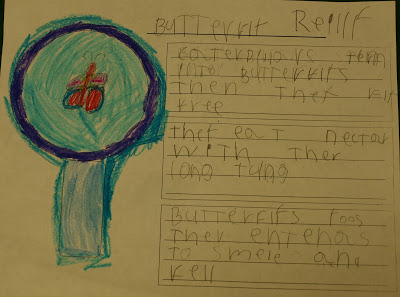 BUTTERFIT Reillf
caterpilars tern
INTO BUTTERFITS
Then Thet
Free
Thet eat nectar
WITH Ther
long tung
BUTTerfifs Yoos
Ther entenas
TO smele and
Fell